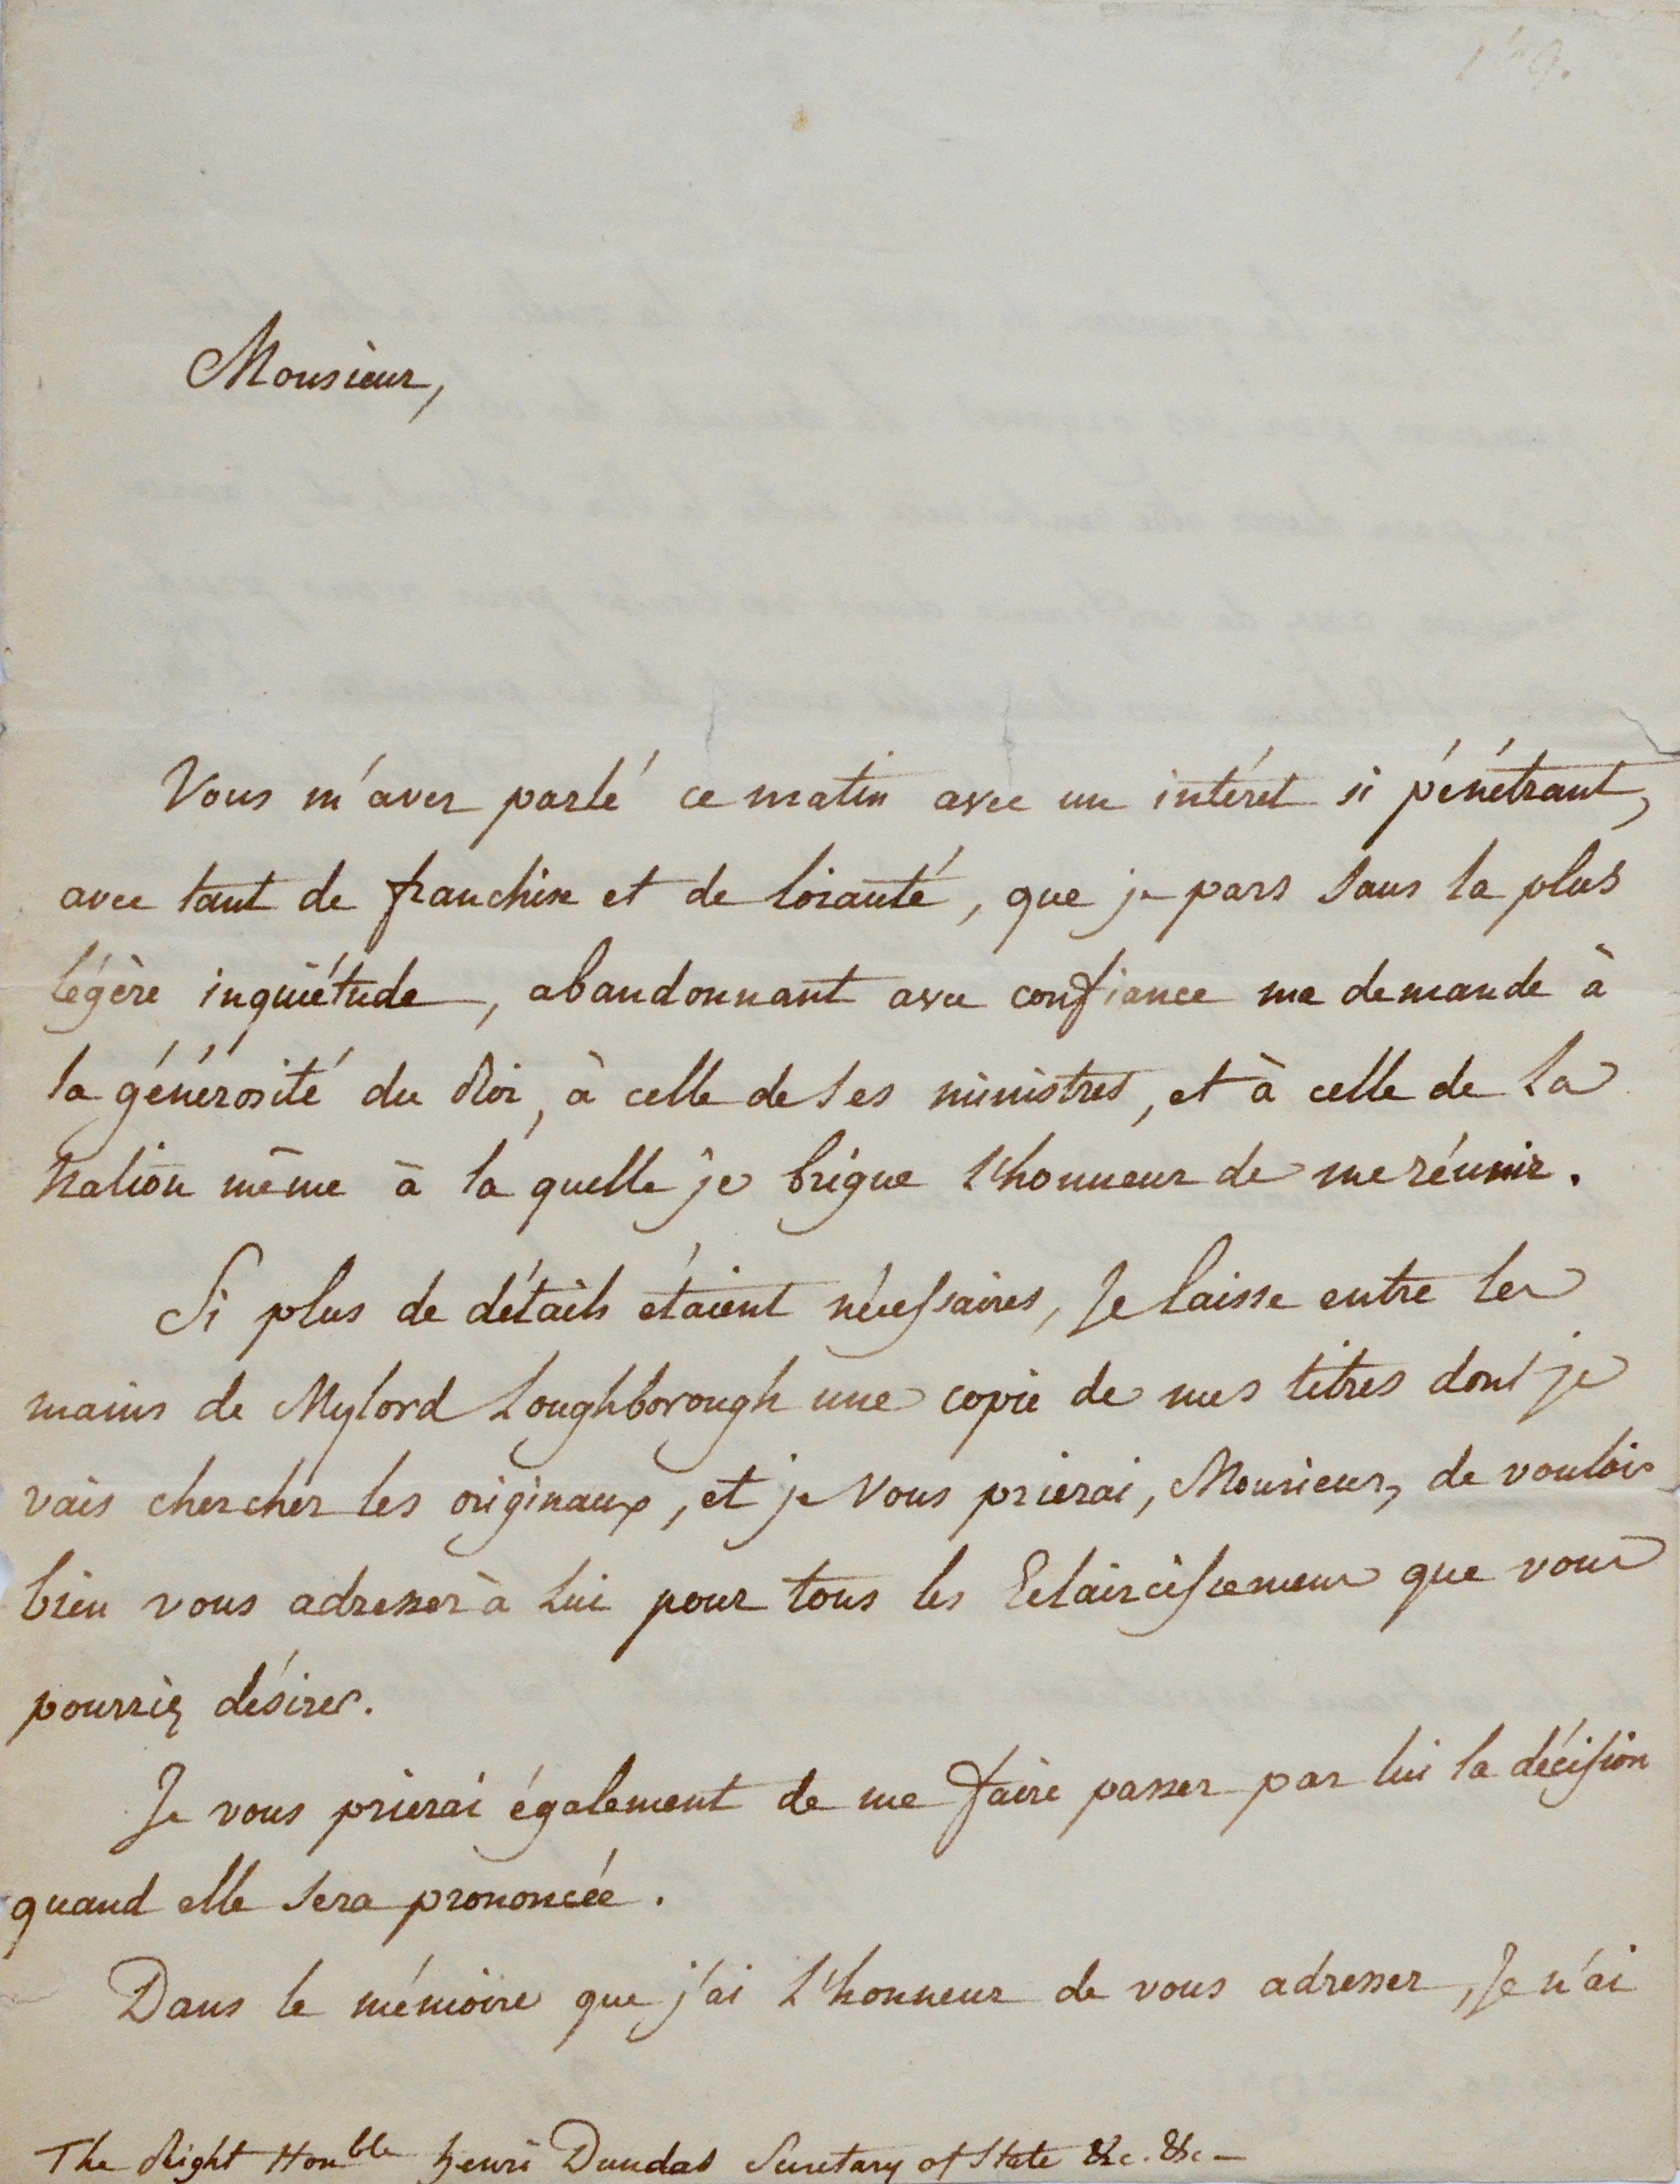 Monsieur,
Vous m'avez parlé ce matin avec un intéret si pénétrant,
avec tant de franchise et de loiauté, que je pars sans la plus
légère inquiétude, abandonnant avec confiance ma demande à
la générosité du Roi, à celle de ses ministres, et à celle de la
Nation même à la quelle je brigue l'honneur de me réunir.
Si plus de détails étaient nécessaires, Je laisse entre les
mains de Mylord Loughborough une copie de mes titres dont je
vais chercher les originaux, et je Vous prierai, Monsieur, de vouloir
bien vous adresser à Lui pour tous les Eclaircissemens que vous
pourriez désirer.
Je vous prierai également de me faire passer par lui la décision
quand elle sera prononcée.
Dans le mémoire que j'ai l'honneur de vous adresser, Je n'ai
The Right Honble henri Dundas Secretary of State &c. &c–